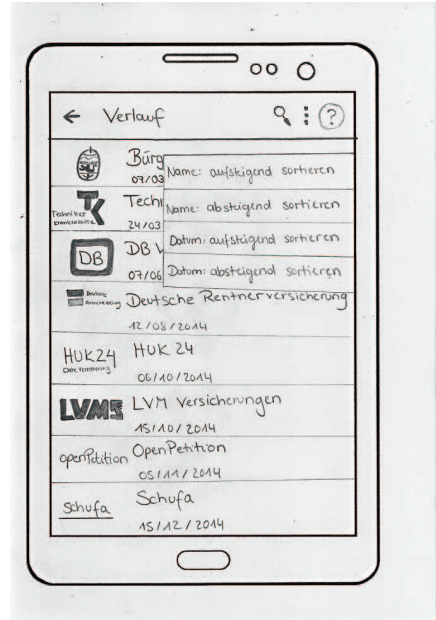 ← Verlauf ?
Bürg
07/03
Name: aufsteigend sortieren
Techniker
Krankenkasse
TK
Techn
24/03
Name: absteigend sortieren
DB
DB V
07/06
Datum: aufsteigend sortieren
Datum: absteigend sortieren
Deutsche
Deutsche Rentnerversicherung
12/08/2014
HUK24
HUK 24
06/10/2014
LVM
LVM Versicherungen
15/10/2014
openPetition
OpenPetition
05/11/2014
Schufa
Schufa
15/12/2014